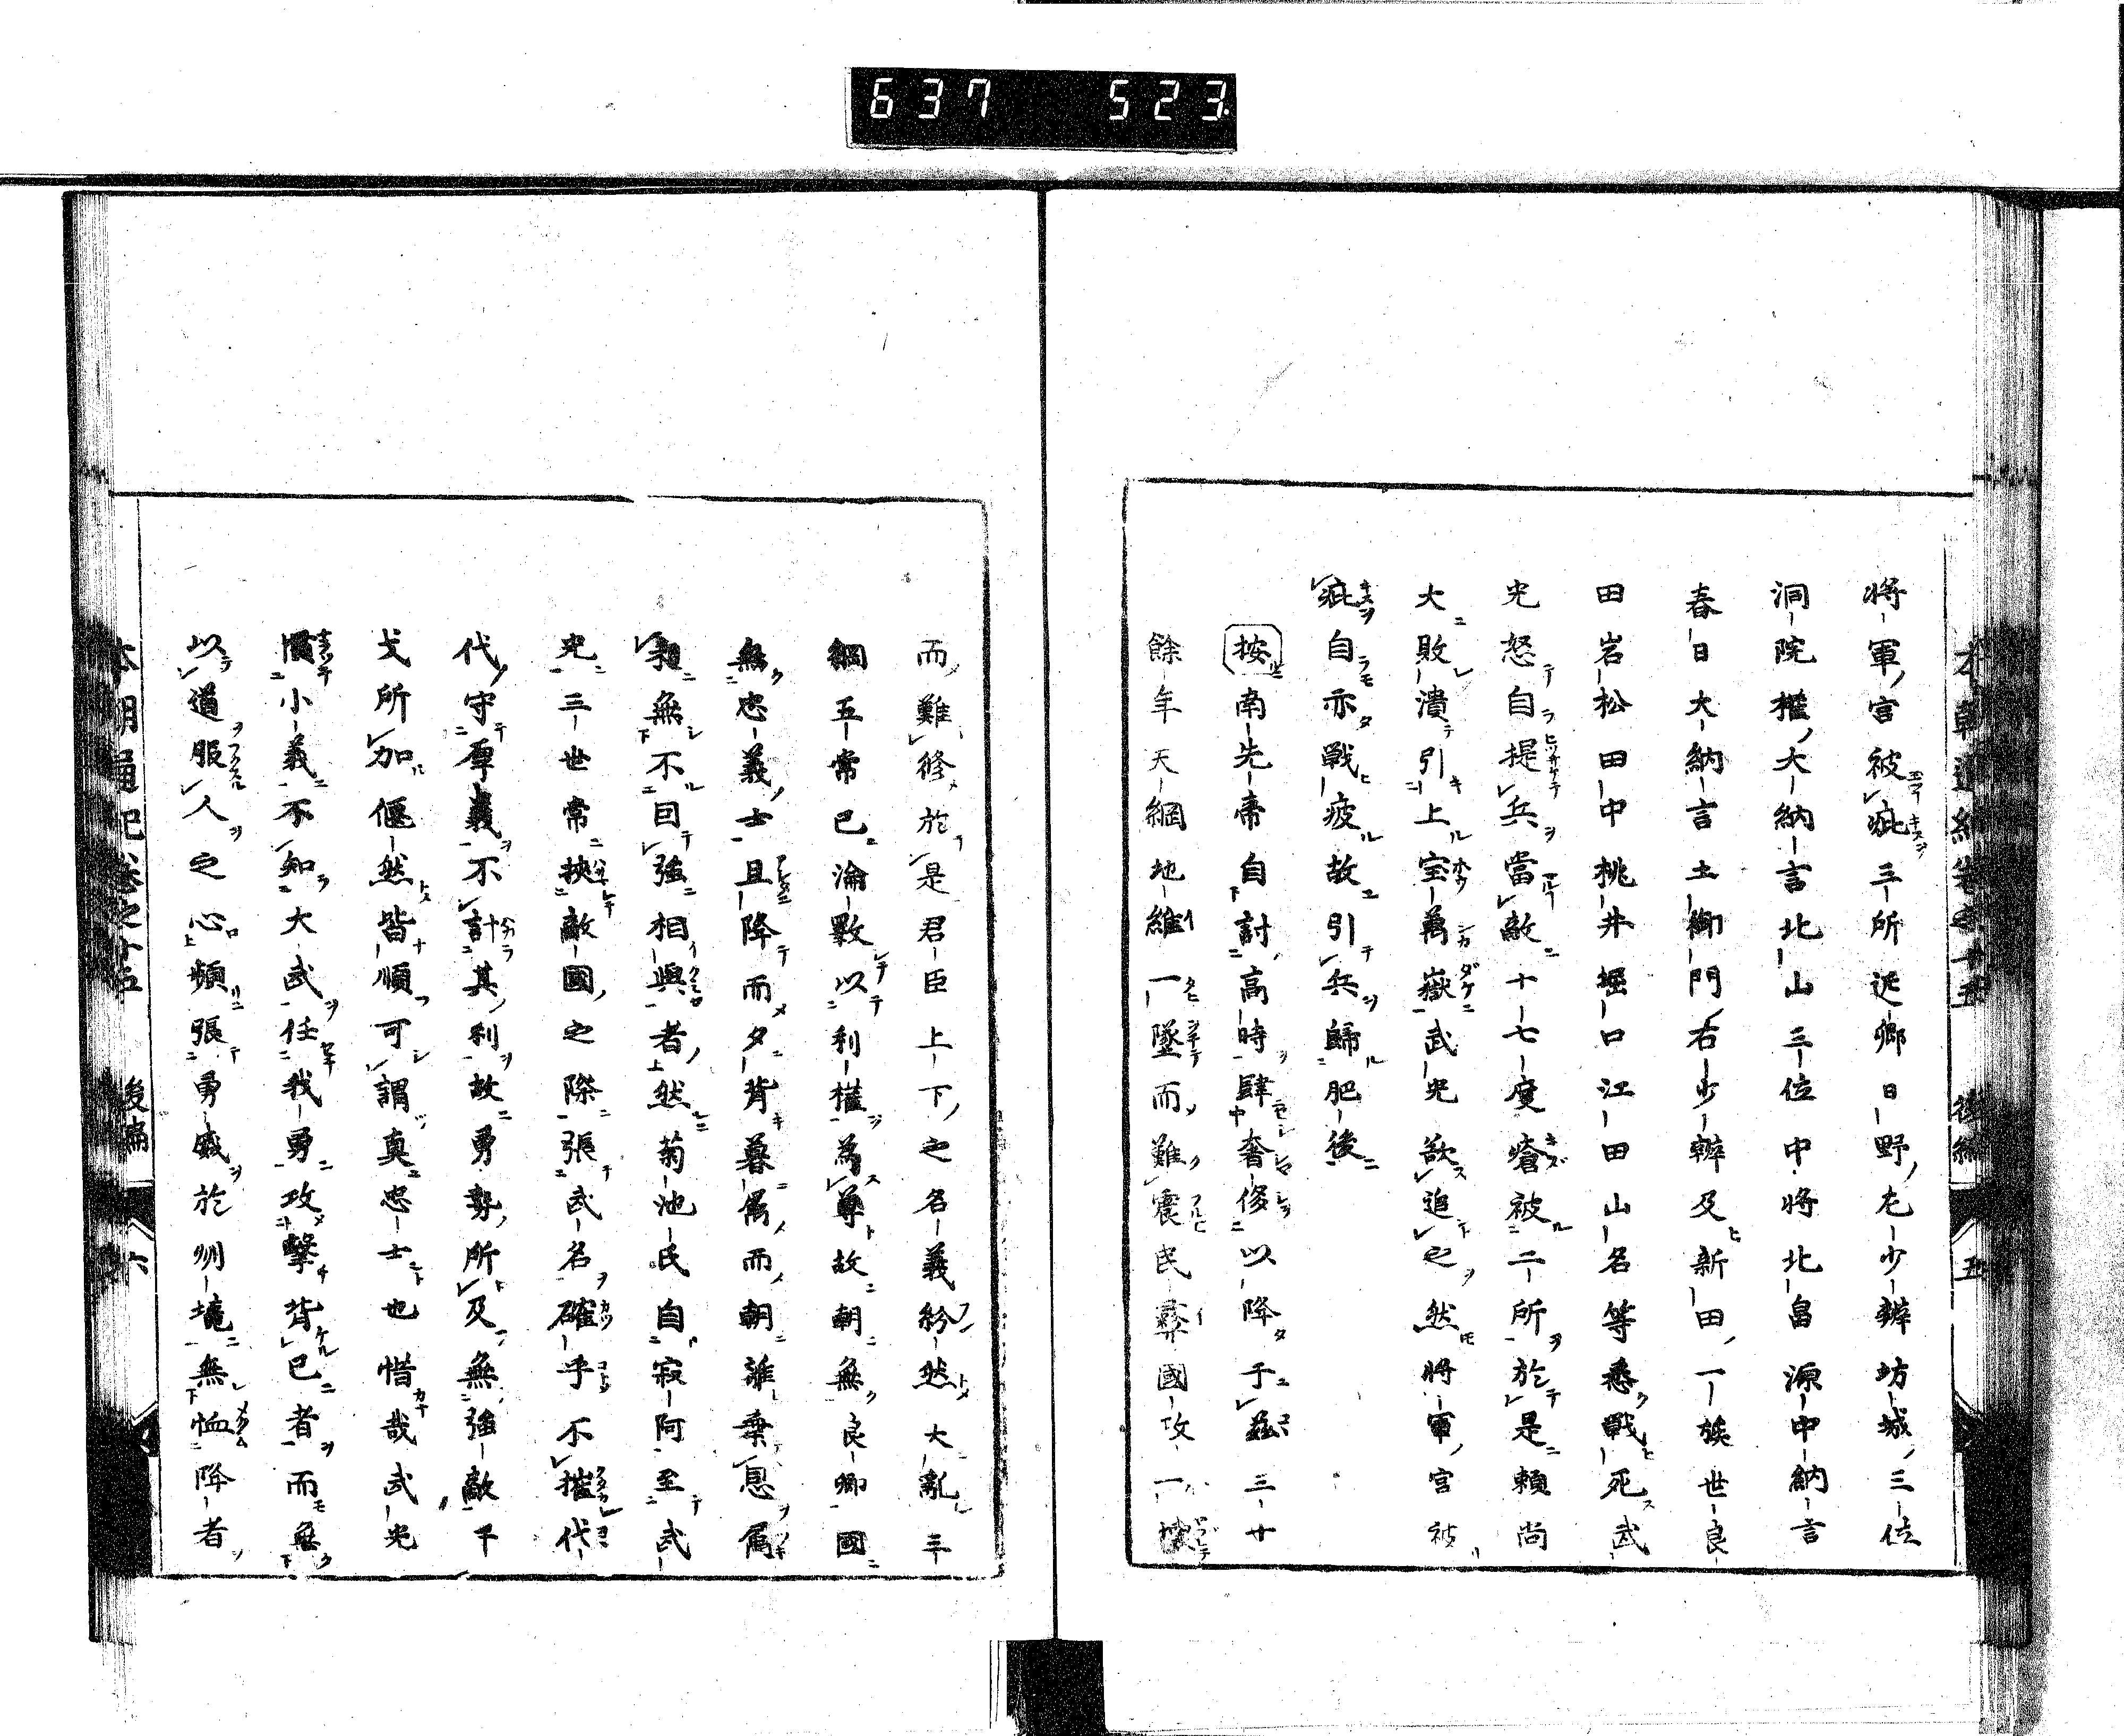 637 523
将軍宮被疵三所迯卿日野左少辨坊城三位
洞院權大納言北山三位中将北畠源中納言
春日大納言土御門右少辨及新田一族世良
田岩松田中桃井堀口江田山名等悉戰死武
光怒自提兵當敵十七度瘡被二所於是頼尚
大敗潰引上宝萬嶽武光欲追之然将軍宮被
疵自亦戰疲故引兵歸肥後
按南先帝自討高時肆奢侈以降于茲三十
餘年天綱地維一墜而難震民彛國攻一
五
而難修於是君臣上下之名義紛然大亂三
綱五常已淪斁以利權為尊故朝無良卿國
無忠義士且降而夕背暮属而朝離棄恩属
親無不回強相與者然菊池氏自寂阿至武
光三世常挾敵國之際張武名確乎不摧代
代守厚義不計其利故勇勢所及無強敵干
戈所加偃然皆順可謂真忠士也惜哉武光
慣小義不知大武任我勇攻擊背已者而無
以道服人之心頻張勇威於州境無恤降者
本朝通紀卷之十五 後編 六